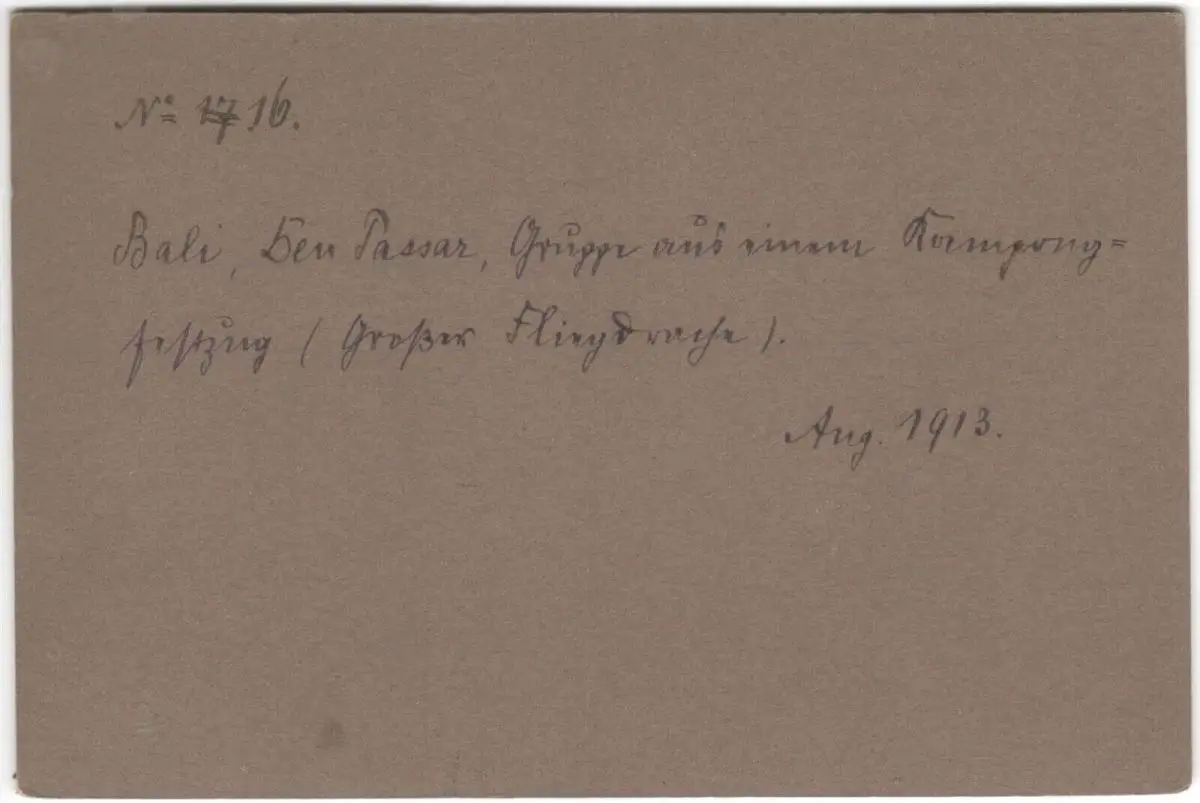 No 17 16.
Bali, Den Passar, Gruppe aus einem Kampong=
festzug (Großer Fliegdrache).
Aug. 1913.